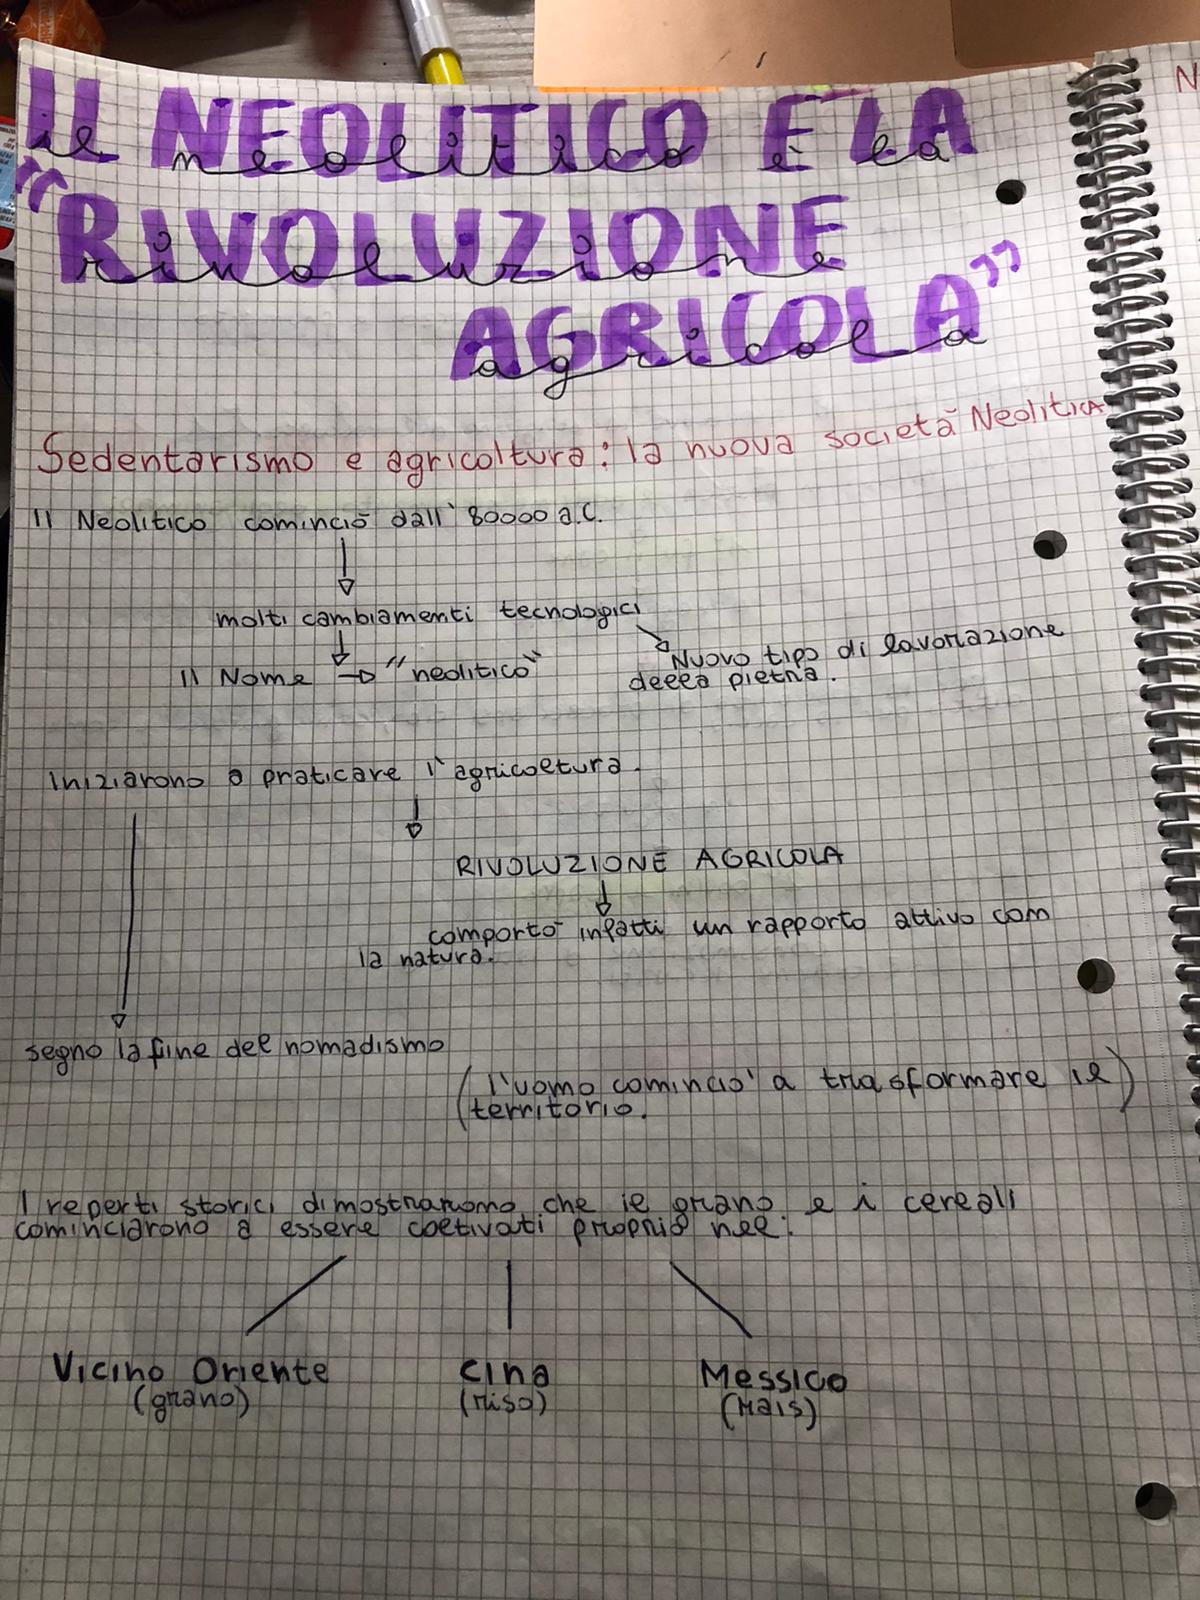 IL NEOLITICO E LA
il neolitico e la
"RIVOLUZIONE
rivoluzione
AGRICOLA"
agricola
N
Sedentarismo e agricoltura: la nuova società Neolitica
Il Neolitico cominciò dall' 80000 a.C.
molti cambiamenti tecnologici
Il Nome → "neolitico"
Nuovo tipo di lavorazione
della pietra.
Iniziarono a praticare l'agricoltura.
RIVOLUZIONE AGRICOLA
comportò infatti un rapporto attivo con
la natura.
segno la fine del nomadismo
(l'uomo cominciò a trasformare il
territorio.)
I reperti storici dimostrarono che il grano e i cereali
cominciarono a essere coltivati proprio nel:
Vicino Oriente
Cina
Messico
(grano)
(riso)
(Mais)